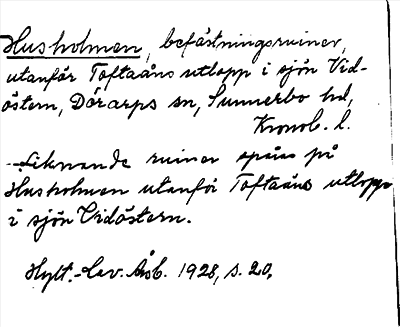 Husholmen, befästningsruiner,
utanför Toftaåns utlopp i sjön Vid-
östern, Dörarps sn, Sunnerbo hd,
Kronob. l.
Liknande ruiner spåras på
Husholmen utanför Toftaåns utlopp
i sjön Vidöstern.
Hylt.-Cav. Åsb. 1928, s. 20.